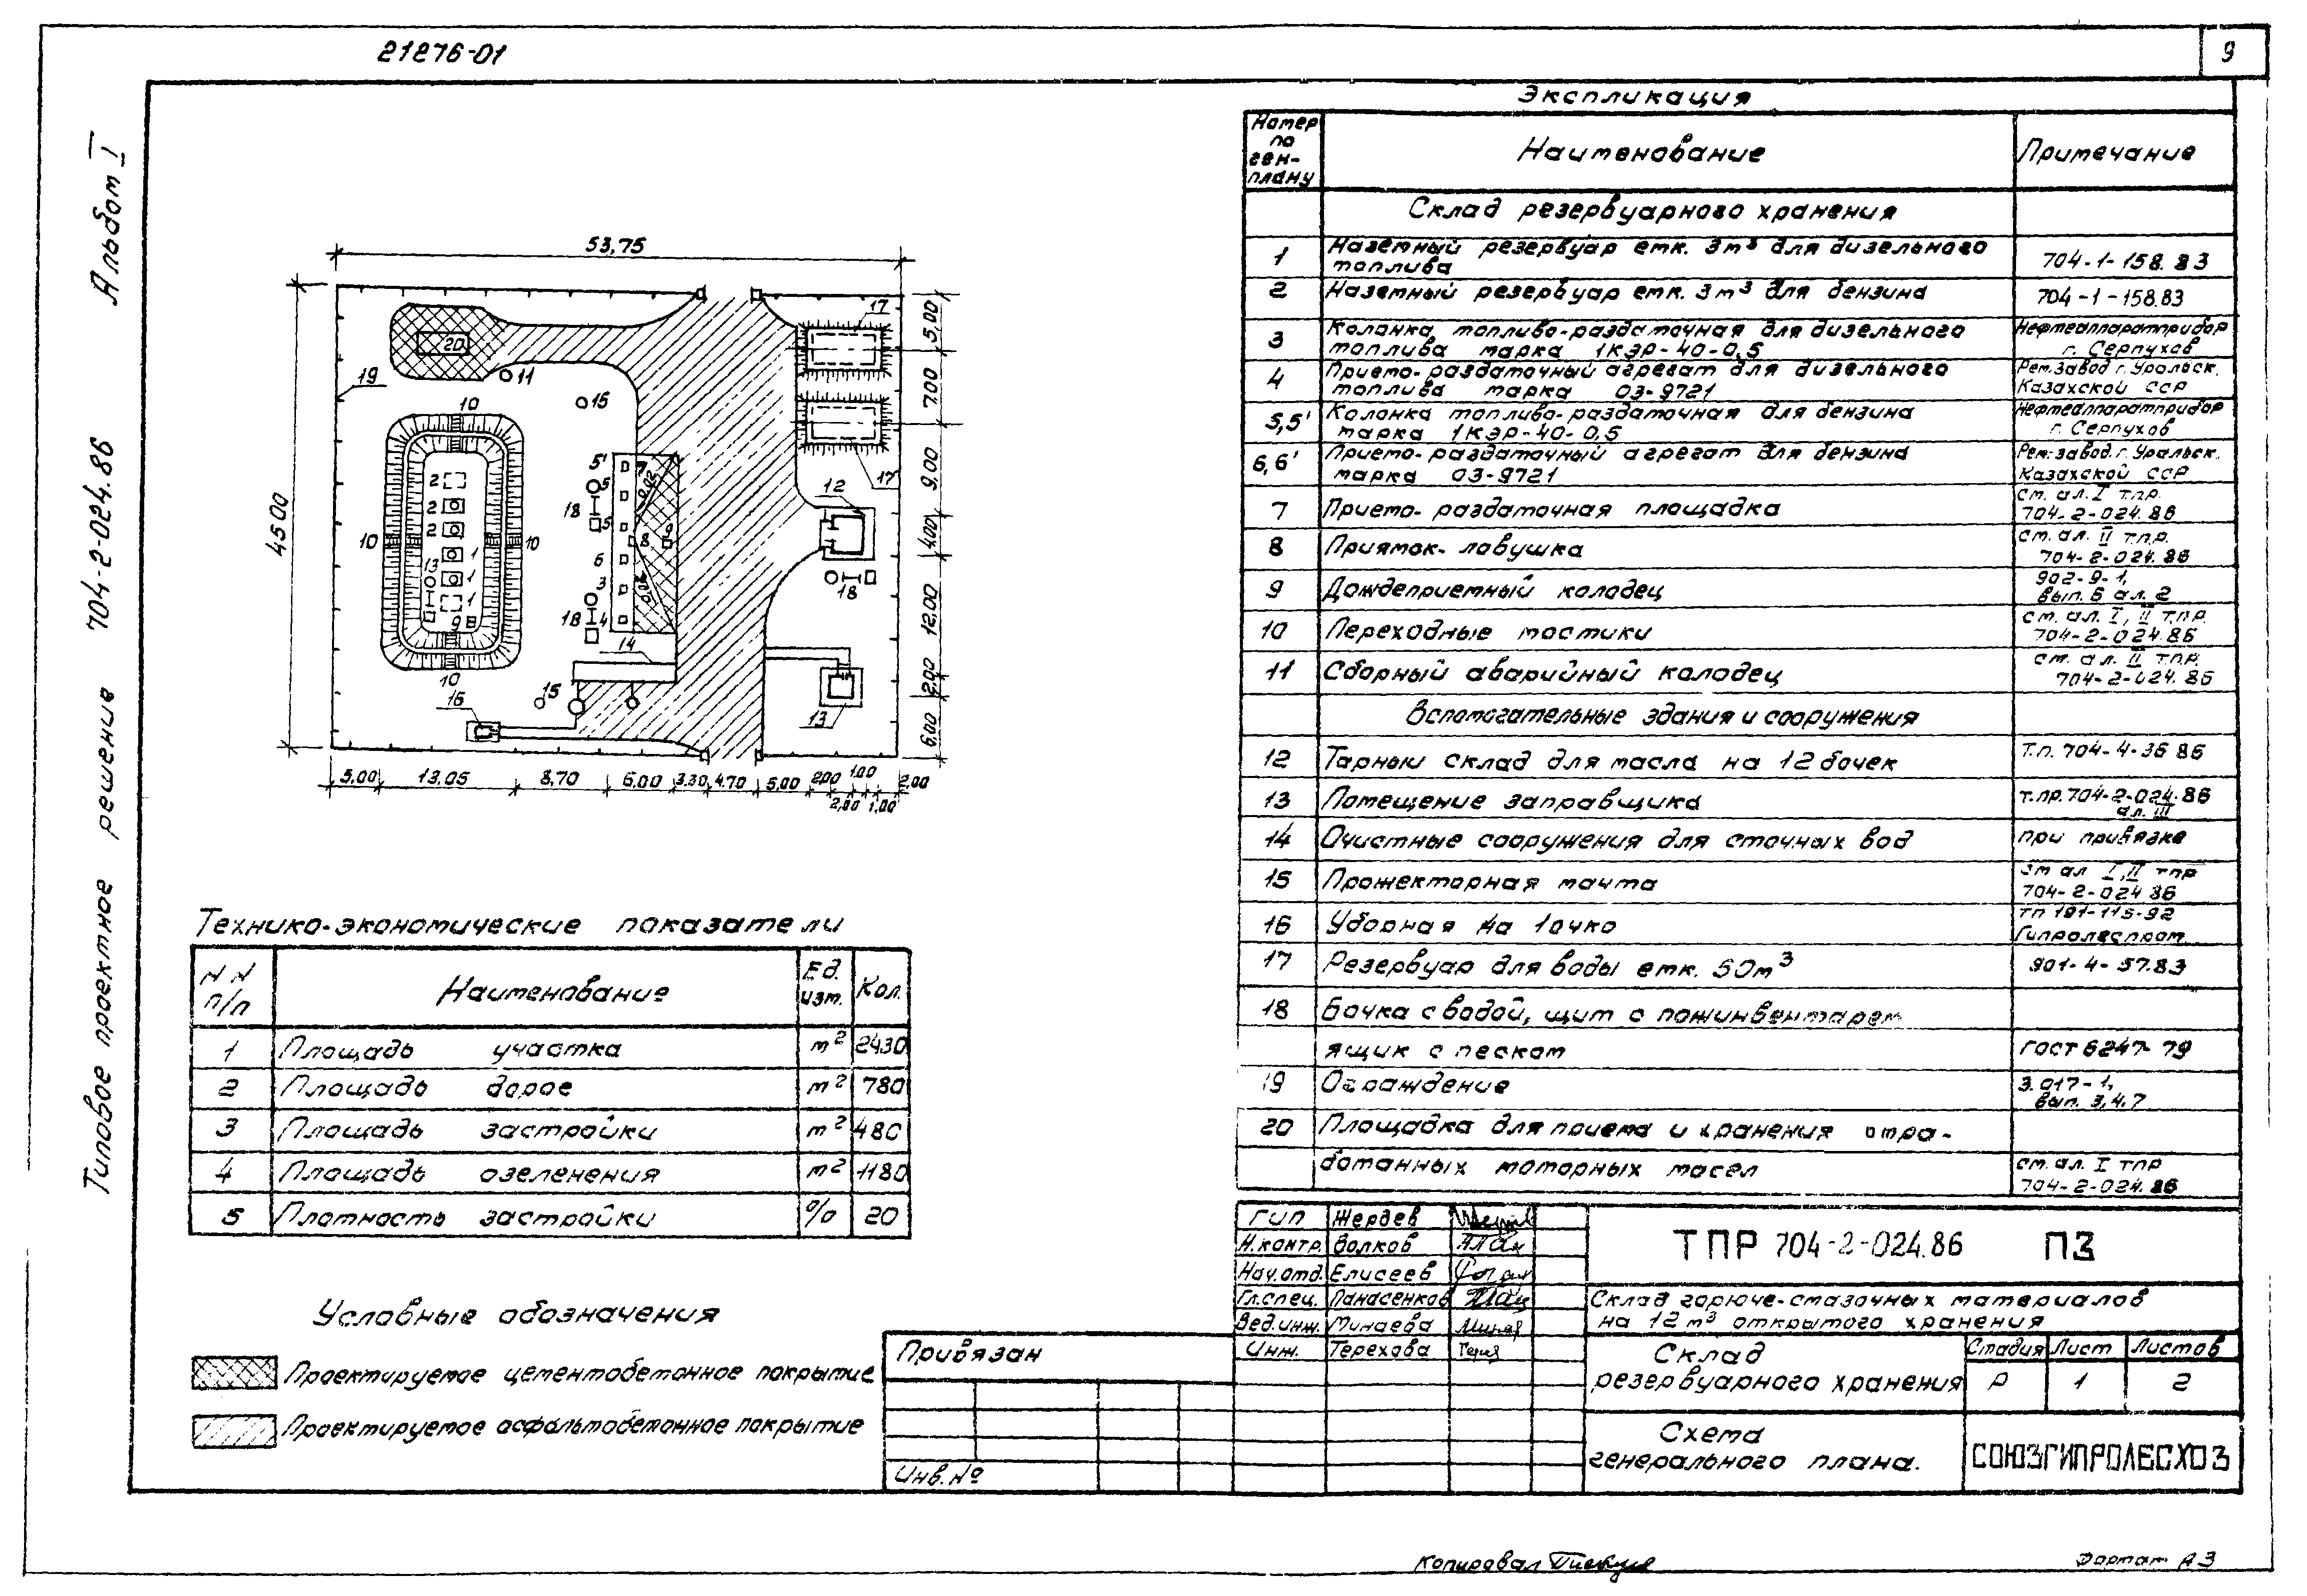 21276-01
9
Альбом I
704-2-024.86
Типовое проектное решение
53,75
45.00
5,00
7.00
9.00
4.00
12.00
2.00
6.00
5,00 13,05 8,70 6,00 3.30 4.70 5,00 2,00 1.00 2,00
2,00 1,00
17
20
19
11
15
10
12
5' 7
2 5 0,02
2 18 5
10 2 10 8 9
1 6
13 1 3 18
1 18 4
9
14
10
16 15 13
Экспликация
Номер по ген-плану Наименование Примечание
Склад резервуарного хранения
1 Наземный резервуар емк. 3м³ для дизельного
топлива 704-1-158.83
2 Наземный резервуар емк. 3м³ для бензина 704-1-158.83
3 Колонка топливо-раздаточная для дизельного Нефтеаппаратприбор
топлива марка 1КЭР-40-0,5 г. Серпухов
4 Приемо-раздаточный агрегат для дизельного Рем.завод г. Уральск.
топлива марка 03-9721 Казахской ССР
5,5' Колонка топливо-раздаточная для бензина Нефтеаппаратприбор
марка 1КЭР-40-0,5 г. Серпухов
6,6' Приемо-раздаточный агрегат для бензина Рем.завод. г. Уральск.
марка 03-9721 Казахской ССР
7 Приемо-раздаточная площадка см. ал. I т.п.р.
704-2-024.86
8 Приямок-ловушка см. ал. II т.п.р.
704-2-024.86
9 Дождеприемный колодец 902-9-1,
вып. 6 ал. 2
10 Переходные мостики см. ал. I, II т.п.р.
704-2-024.86
11 Сборный аварийный колодец см. ал. II т.п.р.
704-2-024.86
Вспомогательные здания и сооружения
12 Тарный склад для масла на 12 бочек Т.п. 704-4-36 86
13 Помещение заправщика т.пр.704-2-024.86
ал. III
14 Очистные сооружения для сточных вод при привязке
15 Прожекторная мачта см ал I, II тпр
704-2-024 86
16 Уборная на 1 очко
Гипролеспром
17 Резервуар для воды емк. 50м³ 901-4-57.83
18 Бочка с водой, щит с пожинвентарем
ящик с песком ГОСТ 6247-79
19 Ограждение 3.017-1,
вып. 3,4.7
20 Площадка для приема и хранения отра-
ботанных моторных масел см. ал. I тпр
704-2-024.86
Технико-экономические показатели
NN п/п Наименование Ед. изм. Кол.
1 Площадь участка м² 2430
2 Площадь дорог м² 780
3 Площадь застройки м² 480
4 Площадь озеленения м² 1180
5 Плотность застройки % 20
Условные обозначения
Проектируемое цементобетонное покрытие
Проектируемое асфальтобетонное покрытие
Привязан
Инв.№
ГИП Жердев
Н.контр. Волков
Нач.отд. Елисеев
Гл.спец. Панасенков
Вед.инж. Минаева
Инж. Терехова
ТПР 704-2-024.86 ПЗ
Склад горюче-смазочных материалов
на 12 м³ открытого хранения
Склад
резервуарного хранения
Стадия Лист Листов
Р 1 2
Схема
генерального плана.
СОЮЗГИПРОЛЕСХОЗ
Копировал
Формат А3